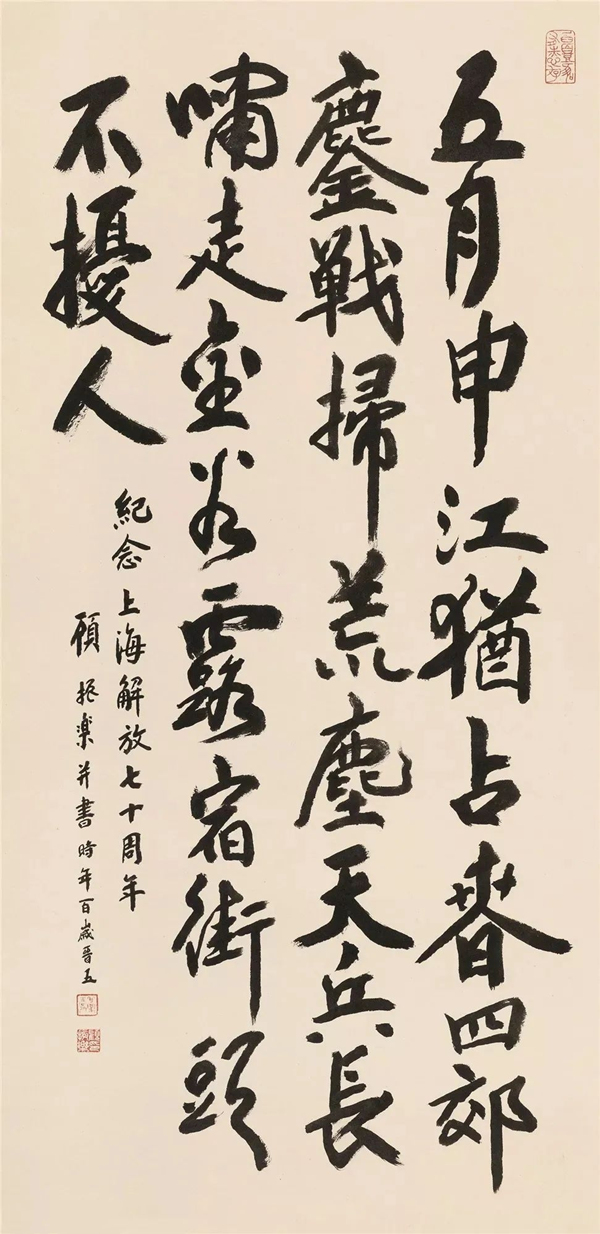 五月申江猶占春四郊
鏖戰掃荒塵天兵長
嘯走金谷露宿街頭
不擾人
紀念上海解放七十周年
顧振樂并書時年百歲晋五